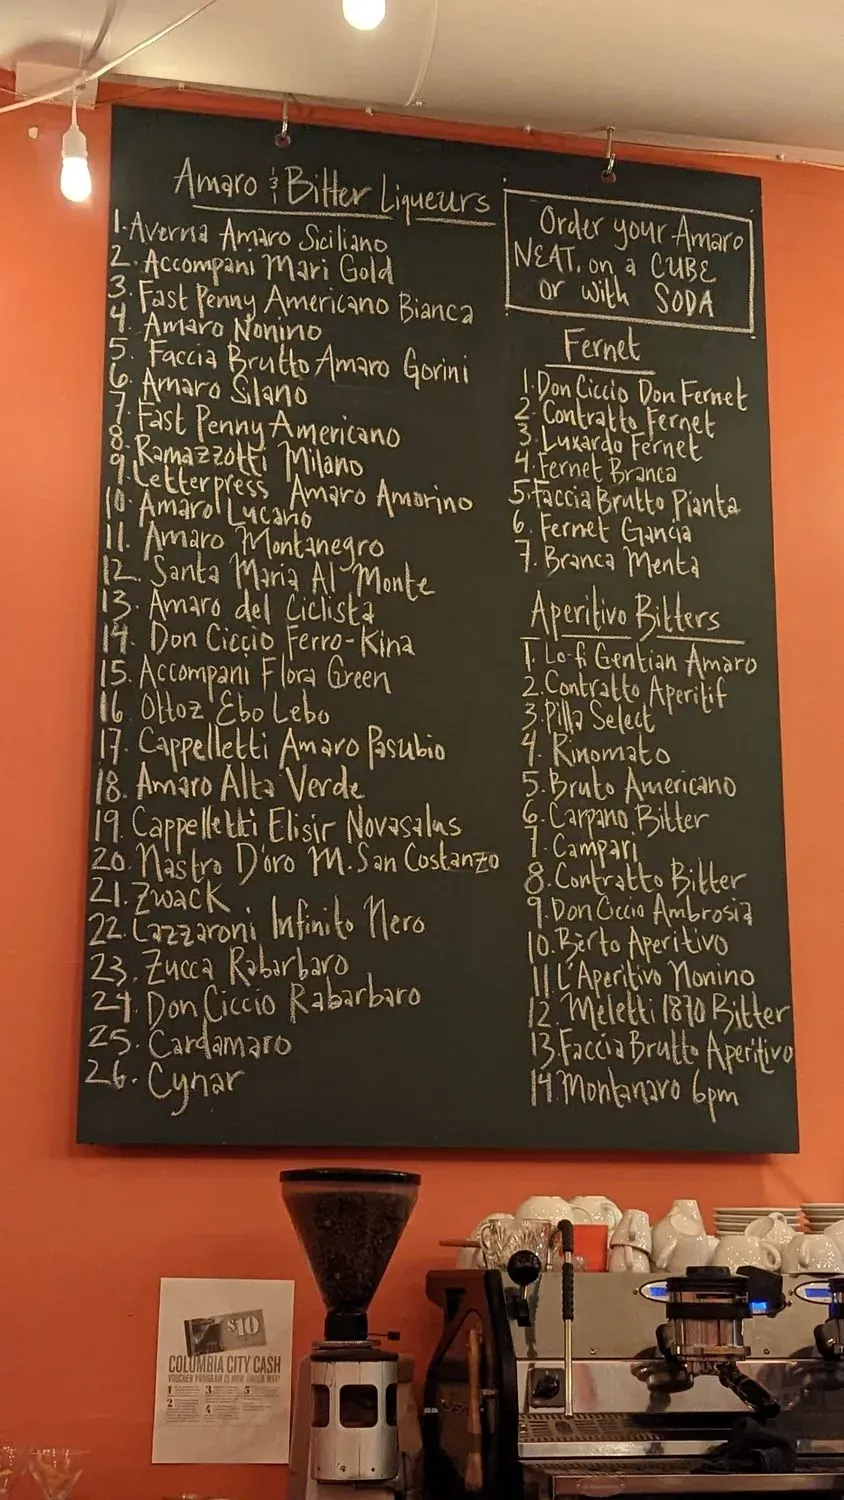 Amaro & Bitter Liqueurs
1. Averna Amaro Siciliano
2. Accompani Mari Gold
3. Fast Penny Americano Bianca
4. Amaro Nonino
5. Faccia Brutto Amaro Gorini
6. Amaro Silano
7. Fast Penny Americano
8. Ramazzotti Milano
9. Letterpress Amaro Amorino
10. Amaro Lucano
11. Amaro Montanegro
12. Santa Maria Al Monte
13. Amaro del Ciclista
14. Don Ciccio Ferro-Kina
15. Accompani Flora Green
16. Ottoz Ebo Lebo
17. Cappelletti Amaro Pasubio
18. Amaro Alta Verde
19. Cappelletti Elisir Novasalus
20. Nastro D'oro M. San Costanzo
21. Zwack
22. Lazzaroni Infinito Nero
23. Zucca Rabarbaro
24. Don Ciccio Rabarbaro
25. Cardamaro
26. Cynar
Order your Amaro
NEAT, on a CUBE
or with SODA
Fernet
1. Don Ciccio Don Fernet
2. Contratto Fernet
3. Luxardo Fernet
4. Fernet Branca
5. Faccia Brutto Pianta
6. Fernet Gancia
7. Branca Menta
Aperitivo Bitters
1. Lo-fi Gentian Amaro
2. Contratto Aperitif
3. Pilla Select
4. Rinomato
5. Bruto Americano
6. Carpano Bitter
7. Campari
8. Contratto Bitter
9. Don Ciccio Ambrosia
10. Berto Aperitivo
11 L'Aperitivo Nonino
12. Meletti 1870 Bitter
13. Faccia Brutto Aperitivo
14. Montanaro 6pm
$10
COLUMBIA CITY CASH
VOUCHER PROGRAM IS NOW UNDER WAY!